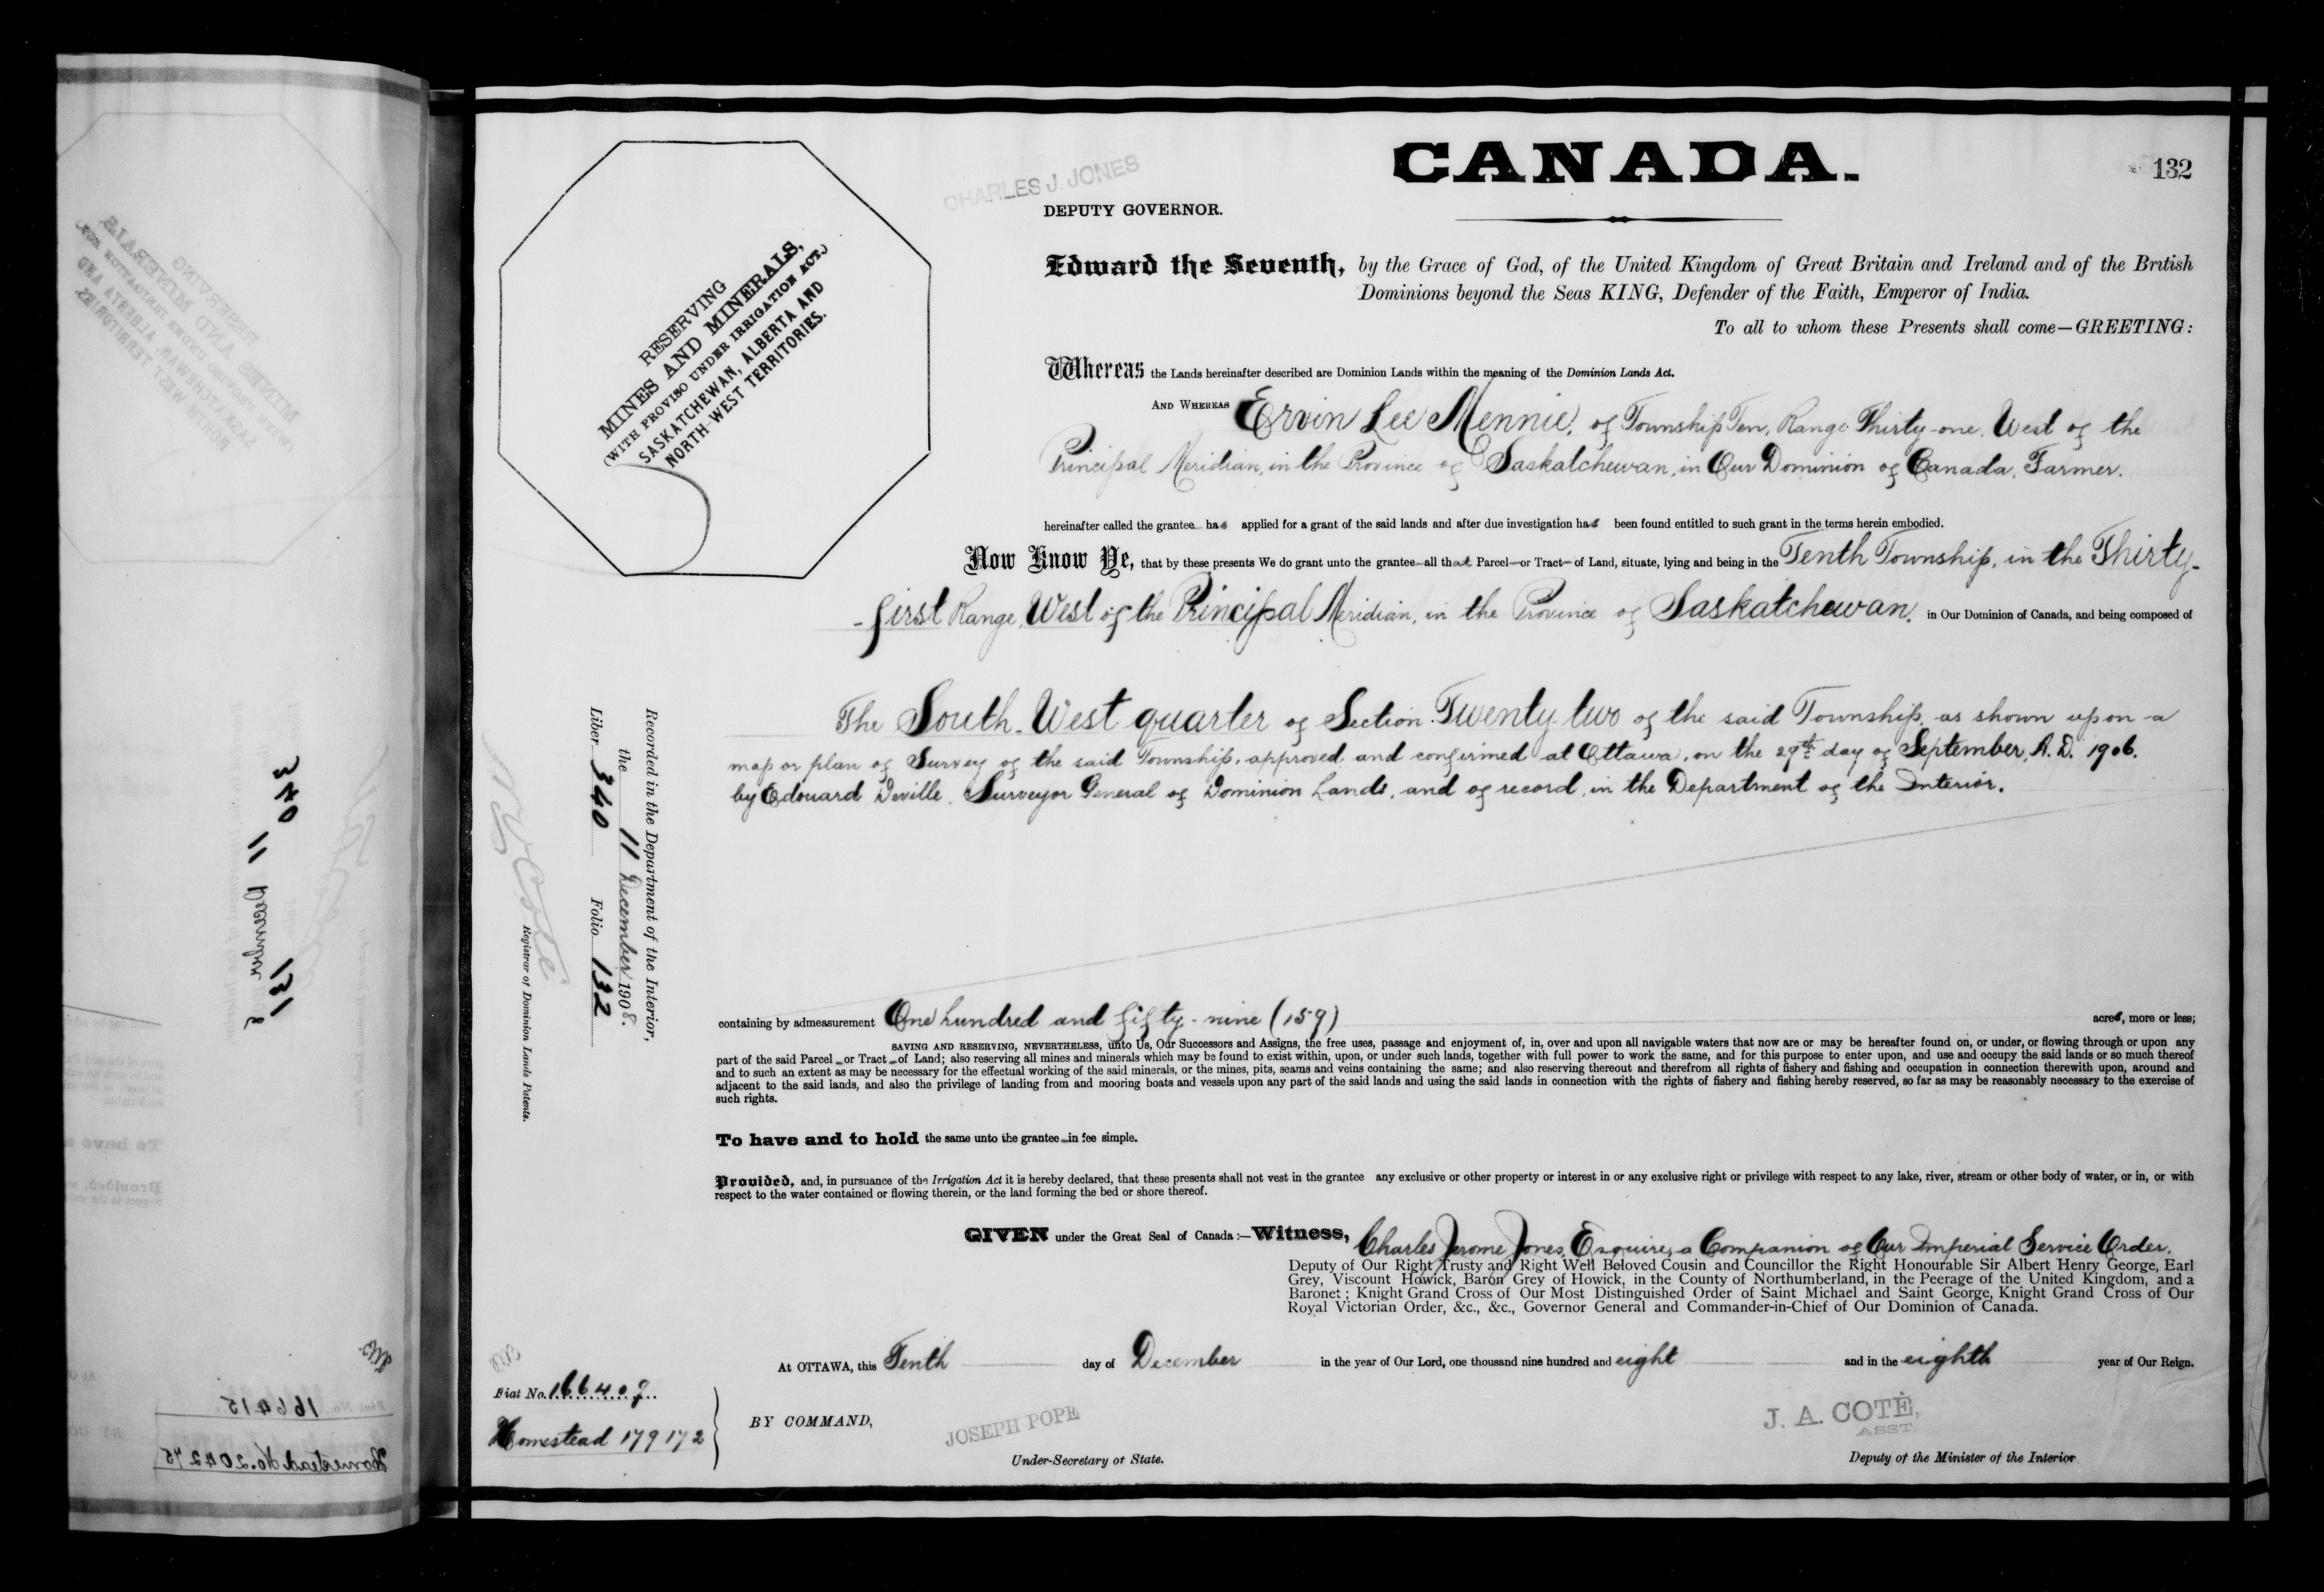 CANADA.
132
CHARLES J. JONES
DEPUTY GOVERNOR.
RESERVING
MINES AND MINERALS,
(WITH PROVISO UNDER IRRIGATION ACT,)
SASKATCHEWAN, ALBERTA AND
NORTH-WEST TERRITORIES.
Edward the Seventh, by the Grace of God, of the United Kingdom of Great Britain and Ireland and of the British
Dominions beyond the Seas KING, Defender of the Faith, Emperor of India.
To all to whom these Presents shall come—GREETING:
Whereas the Lands hereinafter described are Dominion Lands within the meaning of the Dominion Lands Act.
AND WHEREAS Ervin Lee Mennie, of Township Ten, Range Thirty-one, West of the
Principal Meridian, in the Province of Saskatchewan, in Our Dominion of Canada, Farmer.
hereinafter called the grantee has applied for a grant of the said lands and after due investigation has been found entitled to such grant in the terms herein embodied.
Now Know Ye, that by these presents We do grant unto the grantee all that Parcel or Tract of Land, situate, lying and being in the Tenth Township, in the Thirty-
-first Range, West of the Principal Meridian, in the Province of Saskatchewan, in Our Dominion of Canada, and being composed of
The South-West quarter of Section Twenty-two of the said Township, as shown upon a
map or plan of Survey of the said Township, approved and confirmed at Ottawa, on the 29th day of September, A.D. 1906.
by Edouard Deville, Surveyor General of Dominion Lands, and of record in the Department of the Interior.
containing by admeasurement One hundred and fifty-nine (159) acres, more or less;
SAVING AND RESERVING, NEVERTHELESS, unto Us, Our Successors and Assigns, the free uses, passage and enjoyment of, in, over and upon all navigable waters that now are or may be hereafter found on, or under, or flowing through or upon any
part of the said Parcel or Tract of Land; also reserving all mines and minerals which may be found to exist within, upon, or under such lands, together with full power to work the same, and for this purpose to enter upon, and use and occupy the said lands or so much thereof
and to such an extent as may be necessary for the effectual working of the said minerals, or the mines, pits, seams and veins containing the same; and also reserving thereout and therefrom all rights of fishery and fishing and occupation in connection therewith upon, around and
adjacent to the said lands, and also the privilege of landing from and mooring boats and vessels upon any part of the said lands and using the said lands in connection with the rights of fishery and fishing hereby reserved, so far as may be reasonably necessary to the exercise of
such rights.
To have and to hold the same unto the grantee in fee simple.
Provided, and, in pursuance of the Irrigation Act it is hereby declared, that these presents shall not vest in the grantee any exclusive or other property or interest in or any exclusive right or privilege with respect to any lake, river, stream or other body of water, or in, or with
respect to the water contained or flowing therein, or the land forming the bed or shore thereof.
GIVEN under the Great Seal of Canada:—Witness, Charles Jerome Jones, Esquire, a Companion of Our Imperial Service Order,
Deputy of Our Right Trusty and Right Well Beloved Cousin and Councillor the Right Honourable Sir Albert Henry George, Earl
Grey, Viscount Howick, Baron Grey of Howick, in the County of Northumberland, in the Peerage of the United Kingdom, and a
Baronet; Knight Grand Cross of Our Most Distinguished Order of Saint Michael and Saint George, Knight Grand Cross of Our
Royal Victorian Order, &c., &c., Governor General and Commander-in-Chief of Our Dominion of Canada.
At OTTAWA, this Tenth day of December in the year of Our Lord, one thousand nine hundred and eight and in the eighth year of Our Reign.
BY COMMAND,
JOSEPH POPE
Under-Secretary of State.
J. A. COTÉ,
ASST.
Deputy of the Minister of the Interior
Recorded in the Department of the Interior,
the 11 December 1908.
Liber 340 Folio 132
N O Coté
Registrar of Dominion Lands Patents.
Fiat No. 166409
Homestead 179172
340
11 December
131
166415
Homestead No. 204275